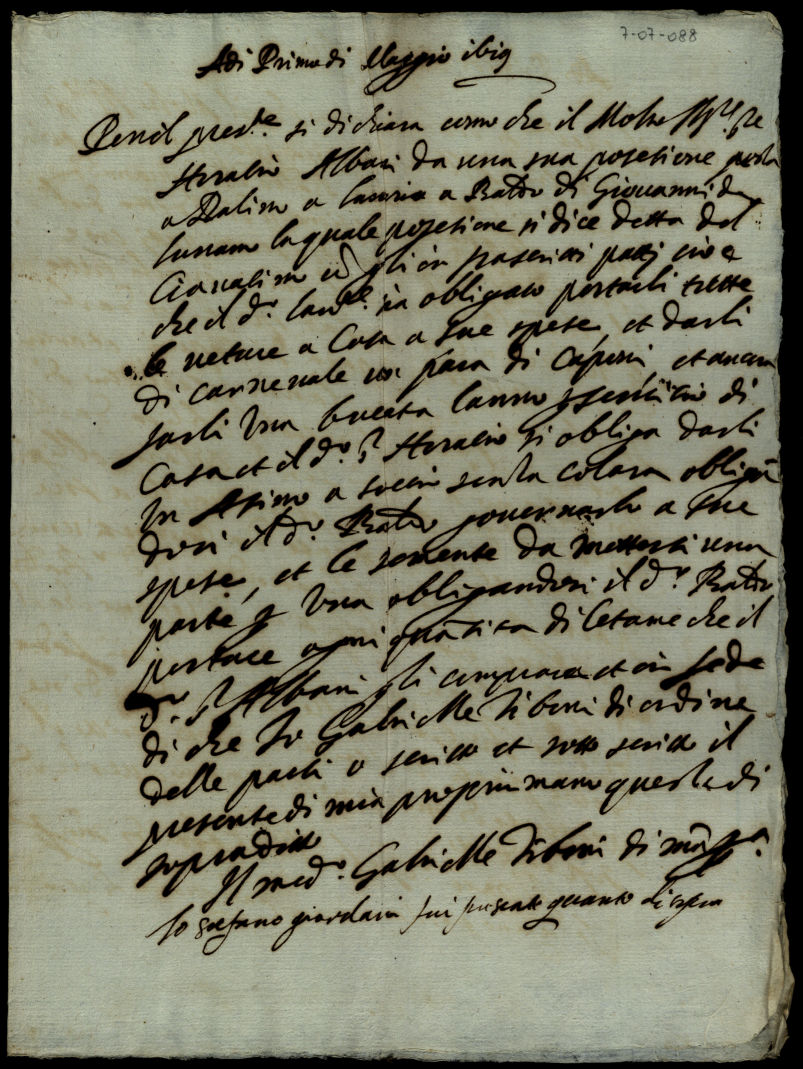 7-07-088
Adi Primo di Maggio 1619
Per il pres.te si dichiara como che il Molto Ill.re S.re
Horatio Albani da una sua posesione posta
a a lavorio a Batto di Giovanni da
la quale posesione si dice detta del
gli in frascritti patti cioe
che il d.o lav.re sia obligato portarli tutte
le veture a Casa a sue spese, et darli
di carnevale un para di Caponi et ancora
farli Una bucata lanno servitio di
Casa et il d.o S. Horatio si obliga darli
Un Asino a socio senza colara obligan
dosi il d.o Batto governarlo a sue
spese, et le semente da mettersi una
parte p Una obligandosi il d.o Batto
portare ogni quātita di letame che il
d.o S. Albani gli comprara et in fede
di che Io Gabrielle Tiboni di ordine
delle parti o scritto et sotto scritto il
presente di mia propria mano questo di
sopraditto
Il med.o Gabrielle Tiboni di man p.a
Io giordani fui presente quanto di sopra